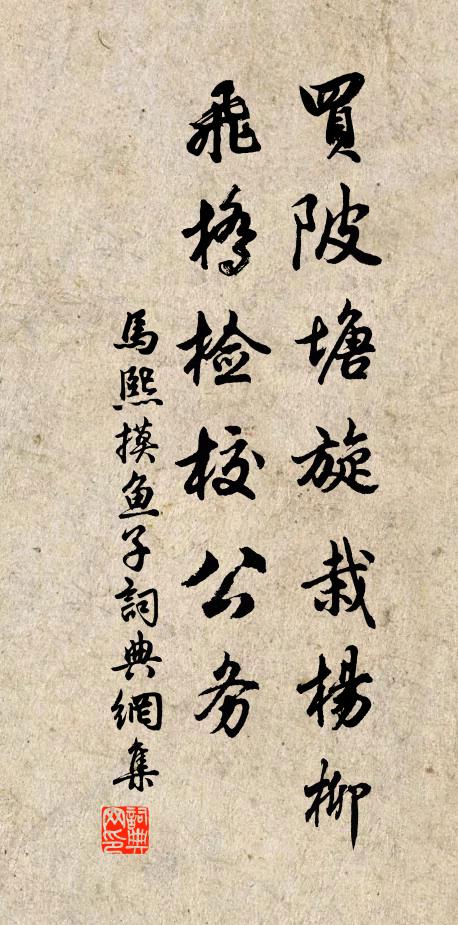 買陂塘旋栽楊柳
飛橋檢校公务
馬熙摸鱼子詞典網集
詞典网印